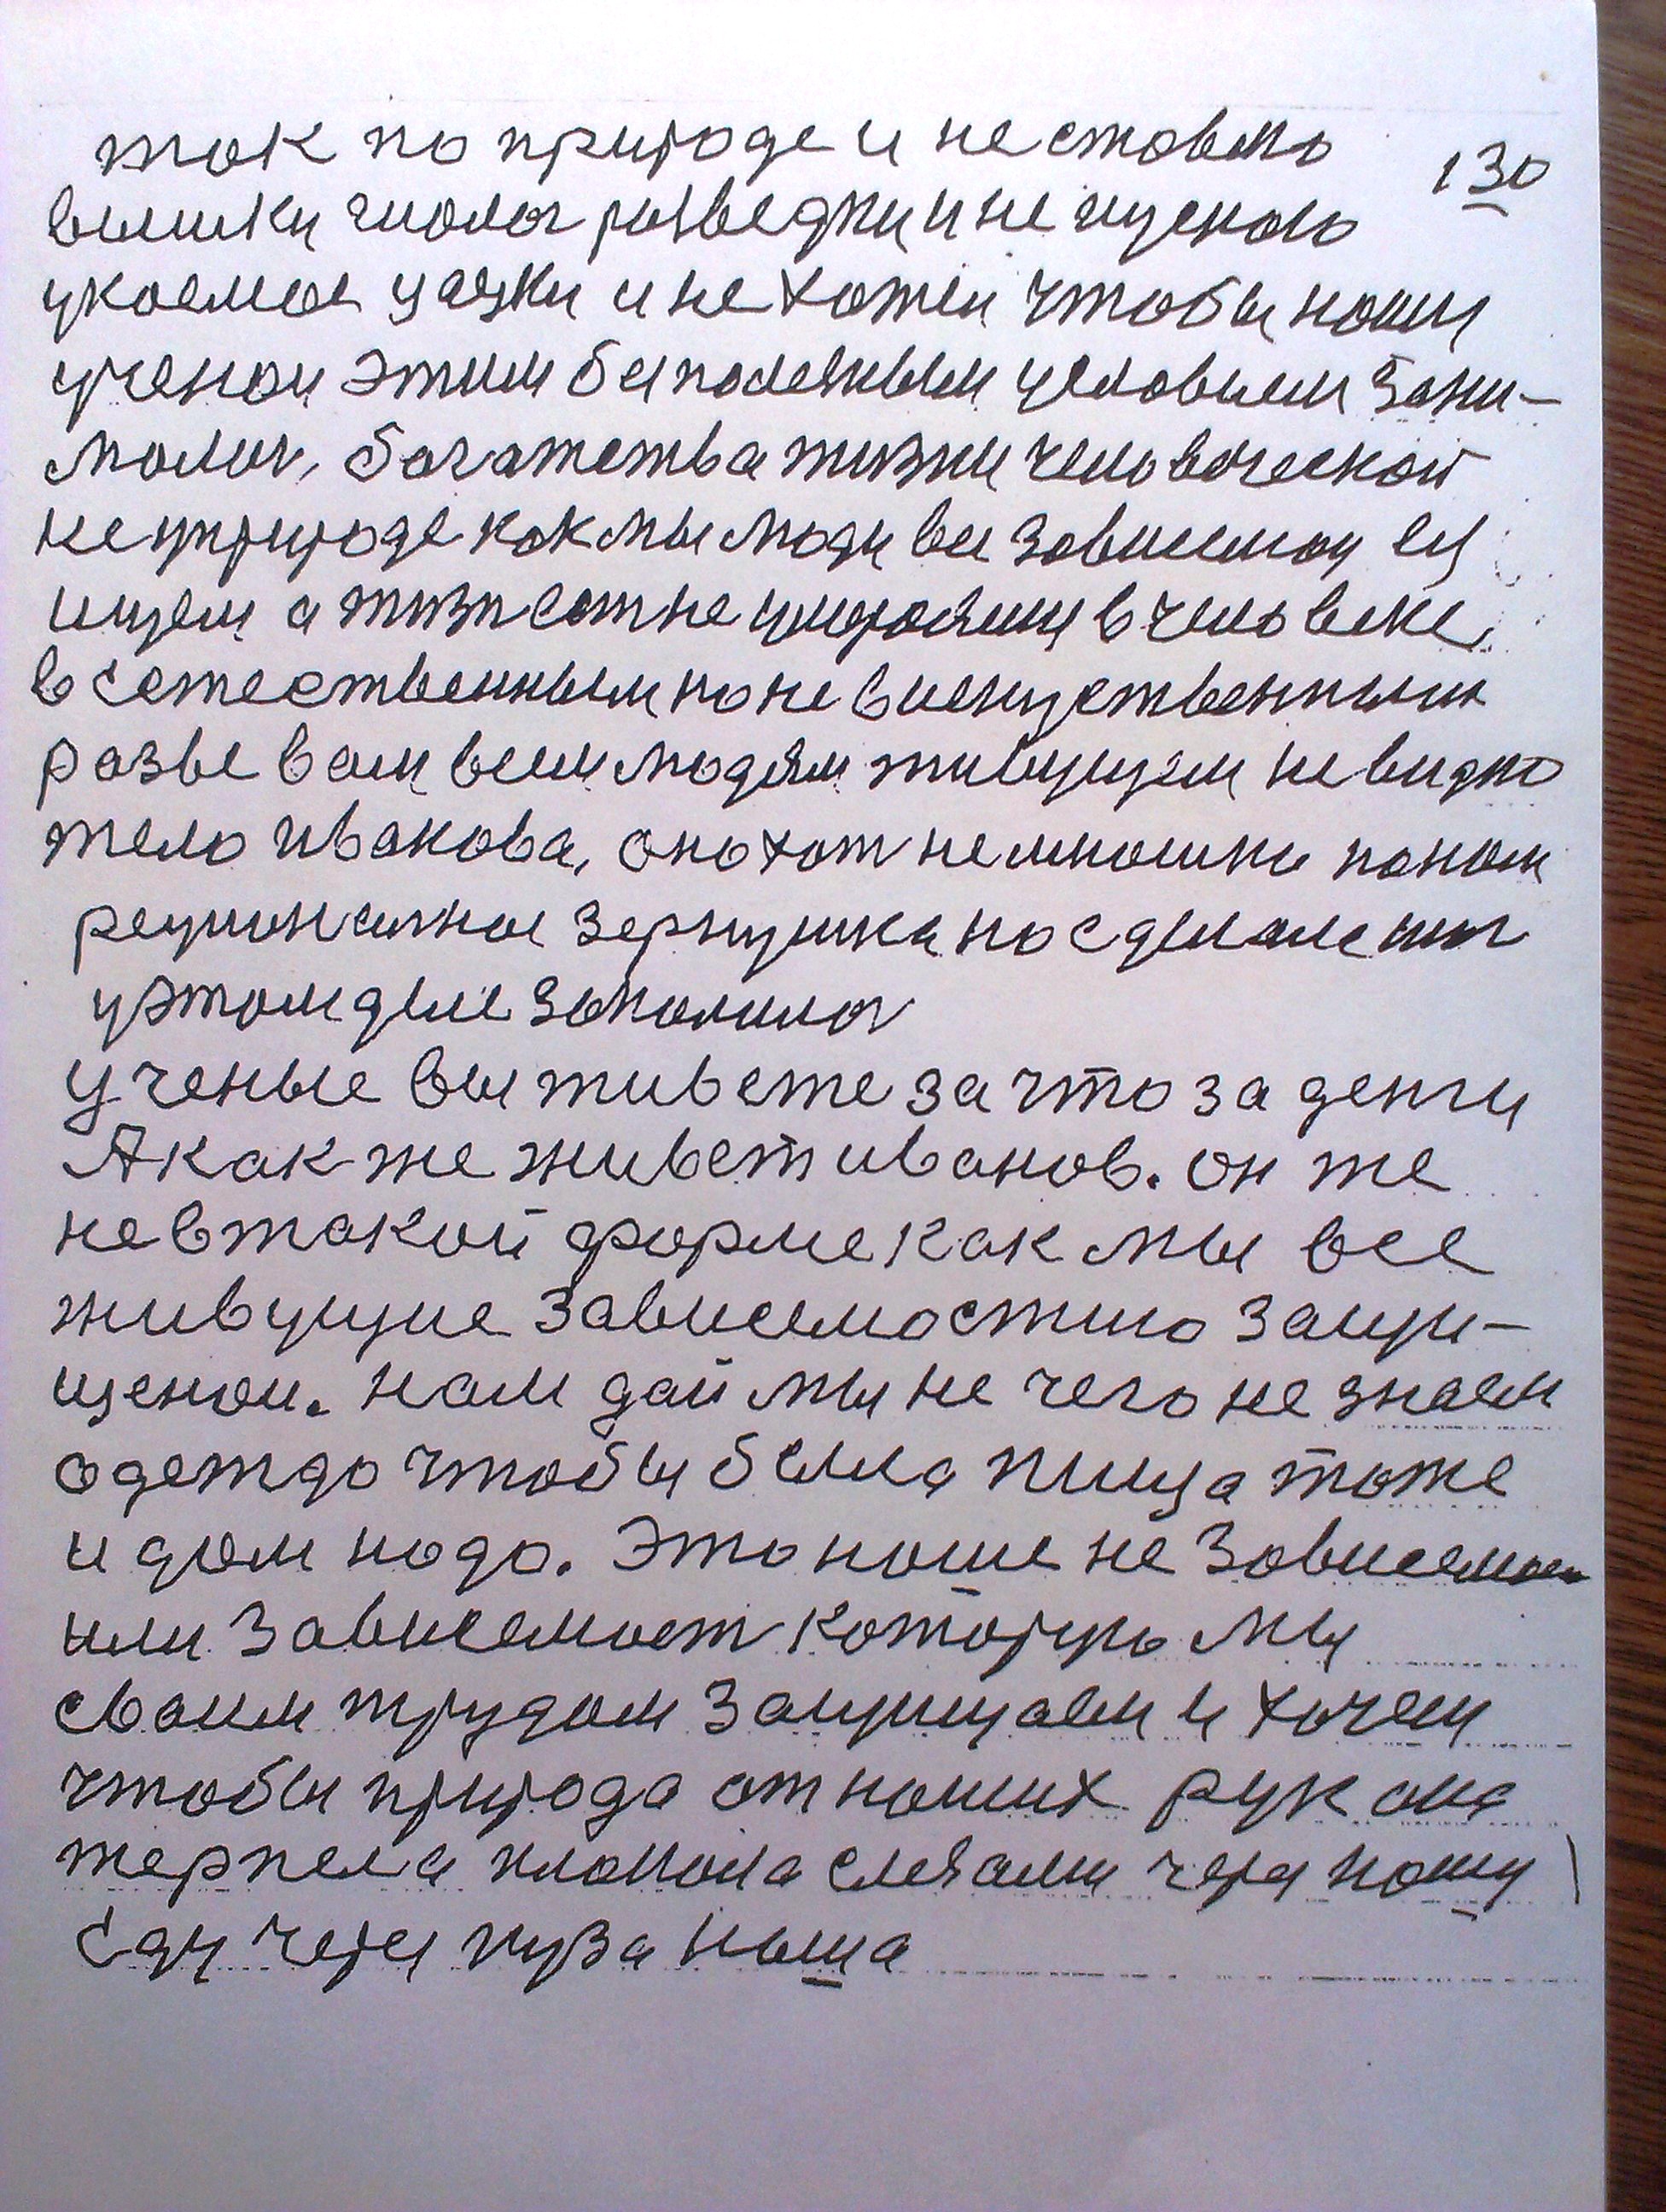 ток по природе и не ставлю 130
вышки геолог разведки и не пускаю
у космос удочки и не хотел чтобы наши
ученаи этим бесполезным условием зани-
молис, богатства жизни человеческой
не у природе как мы люди вси зависимаи ея
ищем а жизн ест не умераяищи в человеке,
в естественным но не в искуственным
разве вам всем людям живущем не видно
тело иванова, оно хот немношки паном
зернушка но сделалас
у этом деле
ученые вы живете за что за денги
А как же живет иванов. он же
не в такой форме как мы все
живущие зависемостию защи-
щенои. нам дай мы не чего не знаем
одеждо чтобы была пища тоже
и дом надо. Это наше не зависемост
или зависемост которую мы
сваим трудом защищаем и хочем
чтобы природа от наших рук она
терпела слезами через нашу
еду через пуза наша